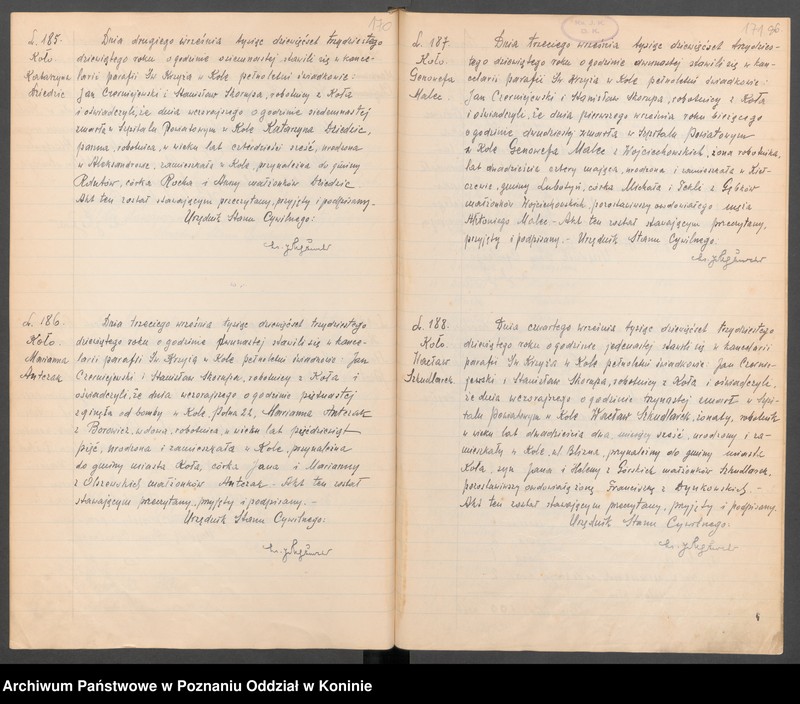 170
L. 185.
Koło.
Katarzyna
Dziedzic
Dnia drugiego września tysiąc dziewięćset trzydziestego
dziewiątego roku o godzinie osiemnastej stawili się w kance-
larii parafii Św Krzyża w Kole pełnoletni świadkowie:
Jan Czerniejewski i Stanisław Skorupa, robotnicy z Koła
i oświadczyli, że dnia wczorajszego o godzinie siedemnastej
zmarła w Szpitalu Powiatowym w Kole Katarzyna Dziedzic,
panna, robotnica, w wieku lat czterdzieści sześć, urodzona
w Aleksandrowie, zamieszkała w Kole, przynależna do gminy
córka Rocha i Anny małżonków Dziedzic
Akt ten został stawającym przeczytany, przyjęty i podpisany.-
Urzędnik Stanu Cywilnego:
L. 186.
Koło.
Marianna
Antczak
Dnia trzeciego września tysiąc dziewięćset trzydziestego
dziewiątego roku o godzinie dwunastej stawili się w kance-
larii parafii Św Krzyża w Kole pełnoletni świadkowie: Jan
Czerniejewski i Stanisław Skorupa, robotnicy z Koła i
oświadczyli, że dnia wczorajszego o godzinie piętnastej
zginęła od bomby w Kole, Polna 22, Marianna Antczak
z Borowicz, wdowa, robotnica, w wieku lat pięćdziesiąt
pięć, urodzona i zamieszkała w Kole, przynależna
do gminy miasta Koła, córka Jana i Marianny
z Olszewskich małżonków Antczak. Akt ten został
stawającym przeczytany, przyjęty i podpisany. -
Urzędnik Stanu Cywilnego:
171 96
L. 187.
Koło.
Genowefa
Malec
Dnia trzeciego września tysiąc dziewięćset trzydzies-
tego dziewiątego roku o godzinie dwunastej stawili się w kan-
celarii parafii Św Krzyża w Kole pełnoletni świadkowie:
Jan Czerniejewski i Stanisław Skorupa, robotnicy z Koła
i oświadczyli, że dnia pierwszego września roku bieżącego
o godzinie dwudziestej zmarła w Szpitalu Powiatowym
w Kole Genowefa Malec z Wojciechowskich, żona robotnika,
lat dwadzieścia cztery mająca, urodzona i zamieszkała w Kieł-
czewie, gminy Lubotyń, córka Michała i Tekli z Gębków
małżonków Wojciechowskich, pozostawiwszy owdowiałego męża
Malec - Akt ten został stawającym przeczytany,
przyjęty i podpisany. - Urzędnik Stanu Cywilnego.
L. 188.
Koło.
Wacław
Szkudlarek.
Dnia czwartego września tysiąc dziewięćset trzydziestego
dziewiątego roku o godzinie jedenastej stawili się w kancelarii
parafii Św Krzyża w Kole pełnoletni świadkowie: Jan Czernie-
jewski i Stanisław Skorupa, robotnicy z Koła i oświadczyli,
że dnia wczorajszego o godzinie trzynastej zmarł w Szpi-
talu Powiatowym w Kole Wacław Szkudlarek, żonaty, robotnik
w wieku lat dwadzieścia dwa, miesięcy sześć, urodzony i za-
mieszkały w Kole, ul. Blizna, przynależny do gminy miasta
Koła, syn Jana i Heleny z Górskich małżonków Szkudlarek,
pozostawiwszy owdowiałą żonę Franciszkę z Dynkowskich. -
Akt ten został stawającym przeczytany, przyjęty i podpisany.
Urzędnik Stanu Cywilnego:
Archiwum Państwowe w Poznaniu Oddział w Koninie